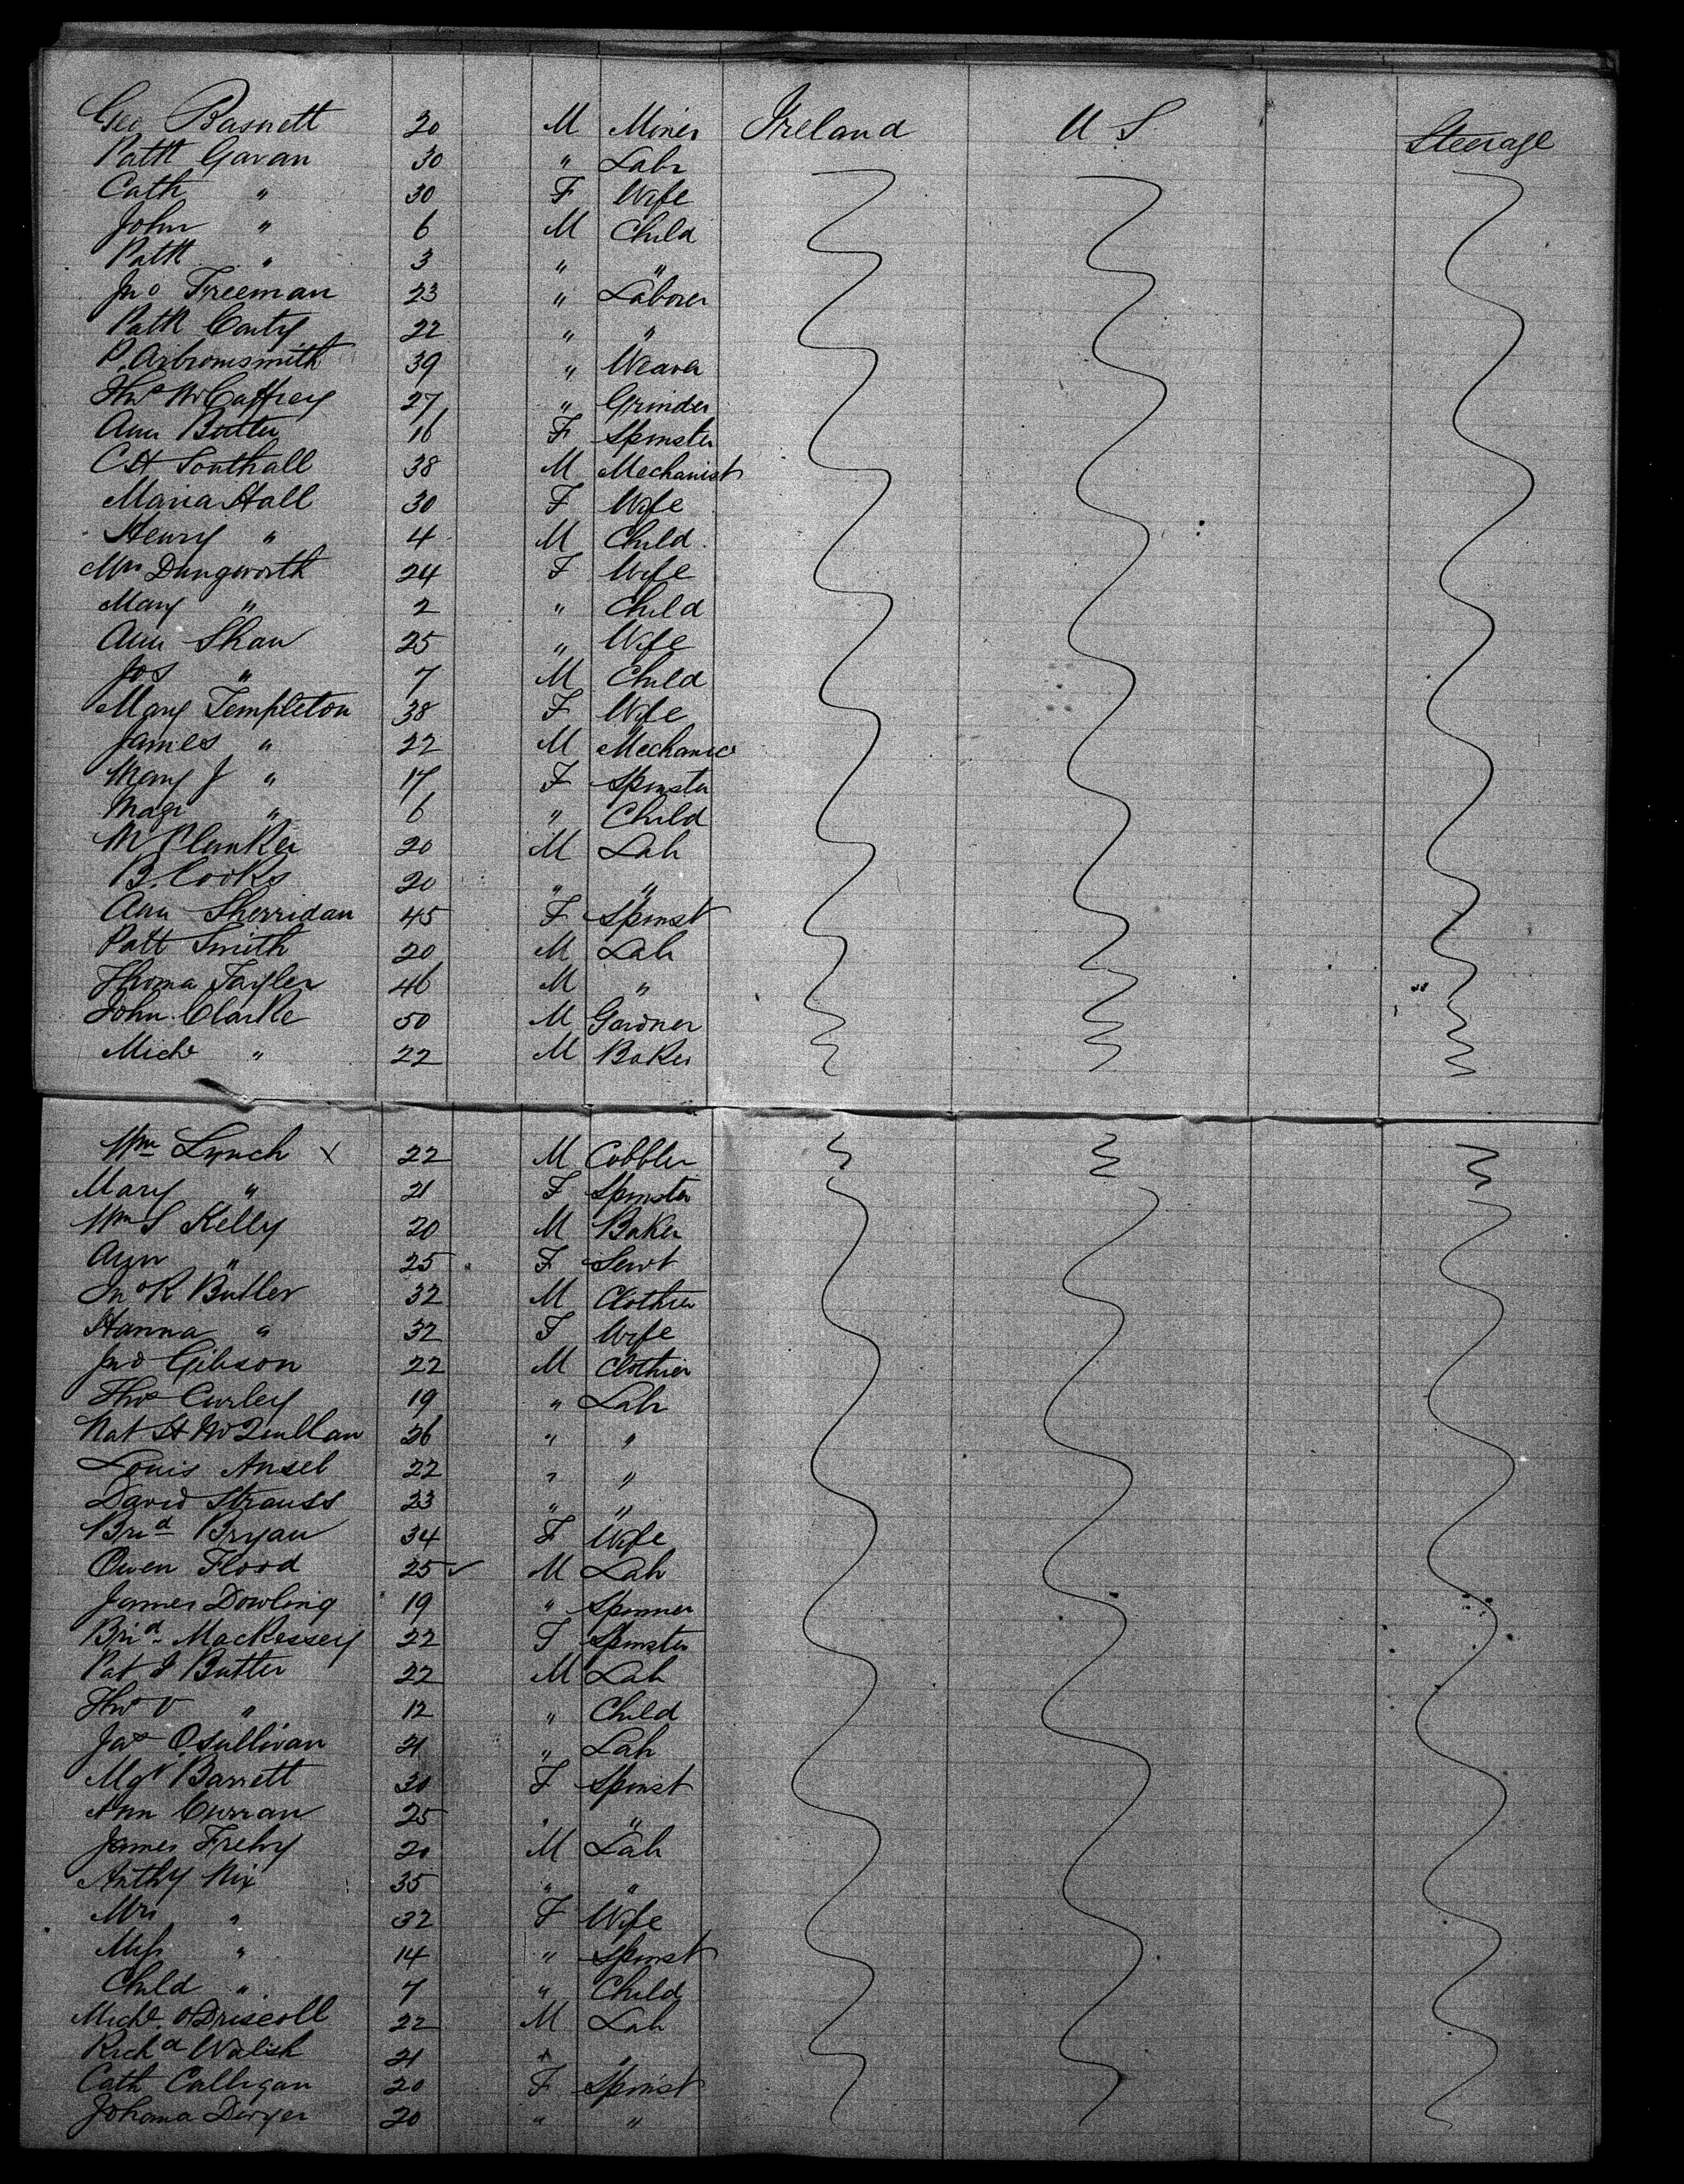 Geo Basnett 20 M Miner Ireland U S Steerage
Patk Gavan 30 " Labr
Cath " 30 F Wife
John " 6 M Child
Patk " 3 " "
Jno Freeman 23 " Laborer
Patk Conty 22 " "
P. Aibromsmith 39 " Weaver
Thos McCaffrey 27 " Grinder
Ann Butter 16 F Spinster
C H Southall 38 M Mechanist
Maria Hall 30 F Wife
Henry " 4 M Child
Mrs Dungworth 24 F Wife
Mary " 2 " Child
Ann Shaw 25 " Wife
Jos " 7 M Child
Mary Templeton 38 F Wife
James " 22 M Mechanic
Mary J " 17 F Spinster
Magt " 6 " Child
M Clanker 20 M Lab
B. Cooks 20 " "
Ann Sherridan 45 F Spinst
Patt Smith 20 M Lab
Thoma Tayler 46 M "
John Clarke 50 M Gardner
Michl " 22 M Baker
Wm Lynch x 22 M Cobbler
Mary " 21 F Spinster
Wm S Kelly 20 M Baker
Ann " 25 F Servt
Jno R Butler 32 M Clothier
Hanna " 32 F Wife
Jno Gibson 22 M Clothier
Thos Curley 19 " Lab
Nat H McQuillan 36 " "
Louis Ansel 22 " "
David Strauss 23 " "
Brid Bryan 34 F Wife
Owen Flood 25 ✓ M Lab
James Dowling 19 " Spinner
Brid Mackessey 22 F Spinster
Pat J Butter 22 M Lab
Thos V " 12 " Child
Jas O'Sullivan 21 " Lab
Mgt Barrett 30 F Spinst
Ann Curran 25 " "
James Frehy 20 M Lab
Anthy Nix 35 " "
Mrs " 32 F Wife
Miss " 14 " Spinst
Child " 7 " Child
Michl O'Driscoll 22 M Lab
Richd Walish 21 " "
Cath Calligan 20 F Spinst
Johana Dwyer 20 " "